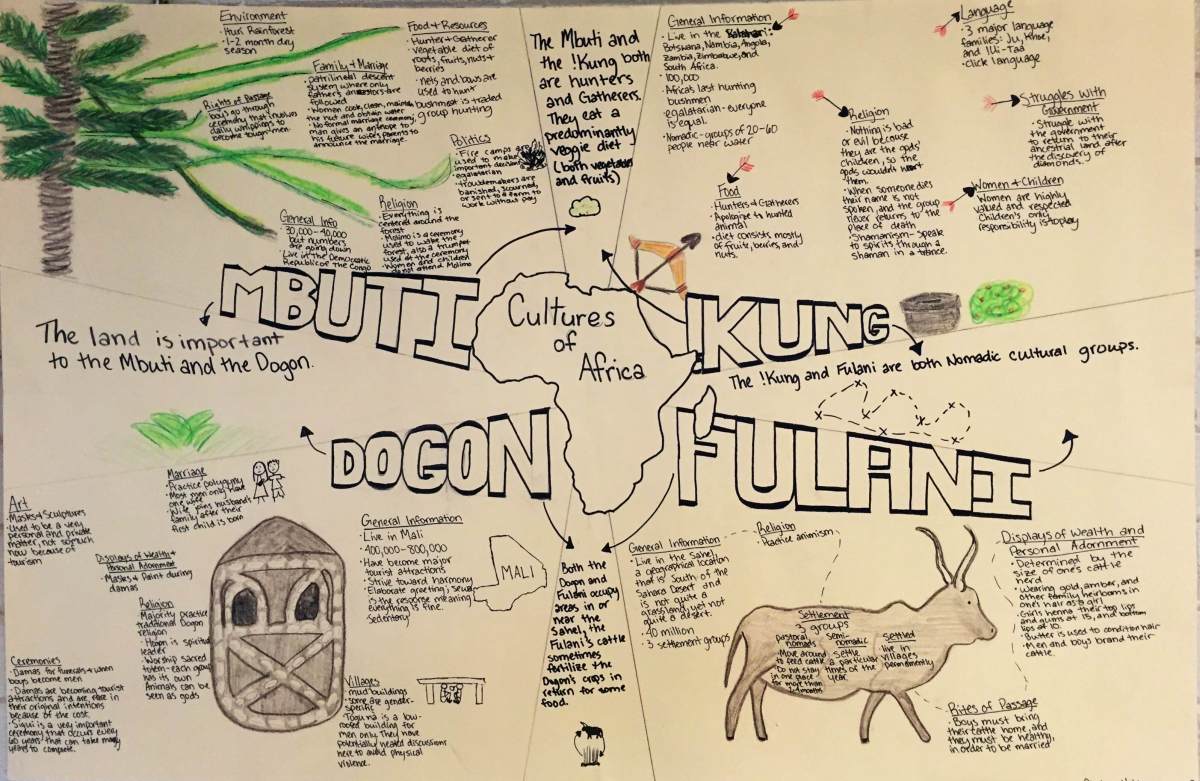 Environment
· Ituri Rainforest
· 1-2 month dry
season
Food & Resources
· Hunter & Gatherer
· vegetable diet of
roots, fruits, nuts &
berries
· nets and bows are
used to hunt
· bushmeat is traded
· group hunting
Family & Marriage
· patrilineal descent
system where only
father's ancestors are
followed
· Women cook, clean, maintain
the hut and obtain water
· No formal marriage ceremony,
man gives an antelope to
his future wife's parents to
announce the marriage.
Rights of Passage
· boys go through
ceremony that involves
daily whippings to
become tough men.
Politics
· Fire camps are
used to make
important decisions
· egalatarian
· troublemakers are
banished, scourned,
or sent to a farm to
work without pay
General Info
· 30,000-40,000
but numbers
are going down
· Live in the Democratic
Republic of The Congo
Religion
· Everything is
centered around the
forest
· Molimo is a ceremony
used to wake the
forest, also a trumpet
used at the ceremony
· Women and children
do not attend Molimo
The Mbuti and
the !Kung both
are hunters
and Gatherers.
They eat a
predominantly
veggie diet
(both vegetables
and fruits)
General Information
· Live in the Kalahari:
Botswana, Nambia, Angola,
Zambia, Zimbabwe, and
South Africa.
· 100,000
· Africa's last hunting
bushmen
· egalatarian-everyone
is equal.
· Nomadic-groups of 20-60
people near water
Food
· Hunters & Gatherers
· Apologize to hunted
animal
· diet consists mostly
of fruits, buries, and
nuts.
Religion
· Nothing is bad
or evil because
they are the gods'
children, so the
gods wouldn't hurt
them.
· When someone dies
their name is not
spoken, and the group
never returns to the
place of death
· Shamanism-speak
to spirits through a
shaman in a trance.
Language
· 3 major language
families: Ju, Khoe,
and !Ui-Taa
· click language
Struggles with
Government
· Struggle with
the government
to return to their
ancestral land after
the discovery of
diamonds.
Women & Children
· Women are highly
valued and respected
· Children's only
responsibility is to play
MBUTI
!KUNG
Cultures
of
Africa
The land is important
to the Mbuti and the Dogon.
The !Kung and Fulani are both Nomadic cultural groups.
DOGON
FULANI
Marriage
· Practice polygyny
· Most men only have
one wife
· Wife joins husband's
family after their
first child is born
Art
· Masks & Sculptures
· Used to be a very
personal and private
matter, not so much
now because of
tourism
Displays of Wealth &
Personal Adornment
· Masks & Paint during
damas
Religion
· Majority practice
traditional Dogon
religion
· Hogon is spiritual
leader
· Worship sacred
totem-each group
has its own
· Animals can be
seen as gods
Ceremonies
· Damas for funerals & when
boys become men
· Damas are becoming tourist
attractions and are rare in
their original intentions
because of the cost.
· Sigui is a very important
ceremony that occurs every
60 years that can take many
years to complete.
General Information
· Live in Mali
· 400,000-800,000
· Have become major
tourist attractions
· Strive toward harmony
· Elaborate greeting;
is the response meaning
everything is fine.
· Sedentary
MALI
Villages
· mud buildings
some are gender-
specific
· Toguna is a low-
roofed building for
men only. They have
potentially heated discussions
here to avoid physical
violence.
Both the
Dogon and
Fulani occupy
areas in or
near the
Sahel, the
Fulani's cattle
sometimes
fertilize the
Dogon's crops in
return for some
food.
General Information
· Live in the Sahel,
a geographical location
that is South of the
Sahara Desert and
is not quite a
grassland, yet not
quite a desert.
· 40 million
· 3 settlement groups
Religion
· Practice animism
Settlement
3 groups
pastoral
nomads
· Move around
to feed cattle
· Do not stay
in one place
for more than
months
semi-
nomadic
· settle
a particular
times of the
year.
settled
· live in
villages
permanently
Displays of Wealth and
Personal Adornment
· Determined by the
size of one's cattle
herd
· Wearing gold, amber, and
other family heirlooms in
one's hair as a girl
· Girls henna their top lips
and gums at 15, and bottom
lips at 10.
· Butter is used to condition hair
· Men and boys brand their
cattle.
Rites of Passage
· Boys must bring
their cattle home, and
they must be healthy,
in order to be married